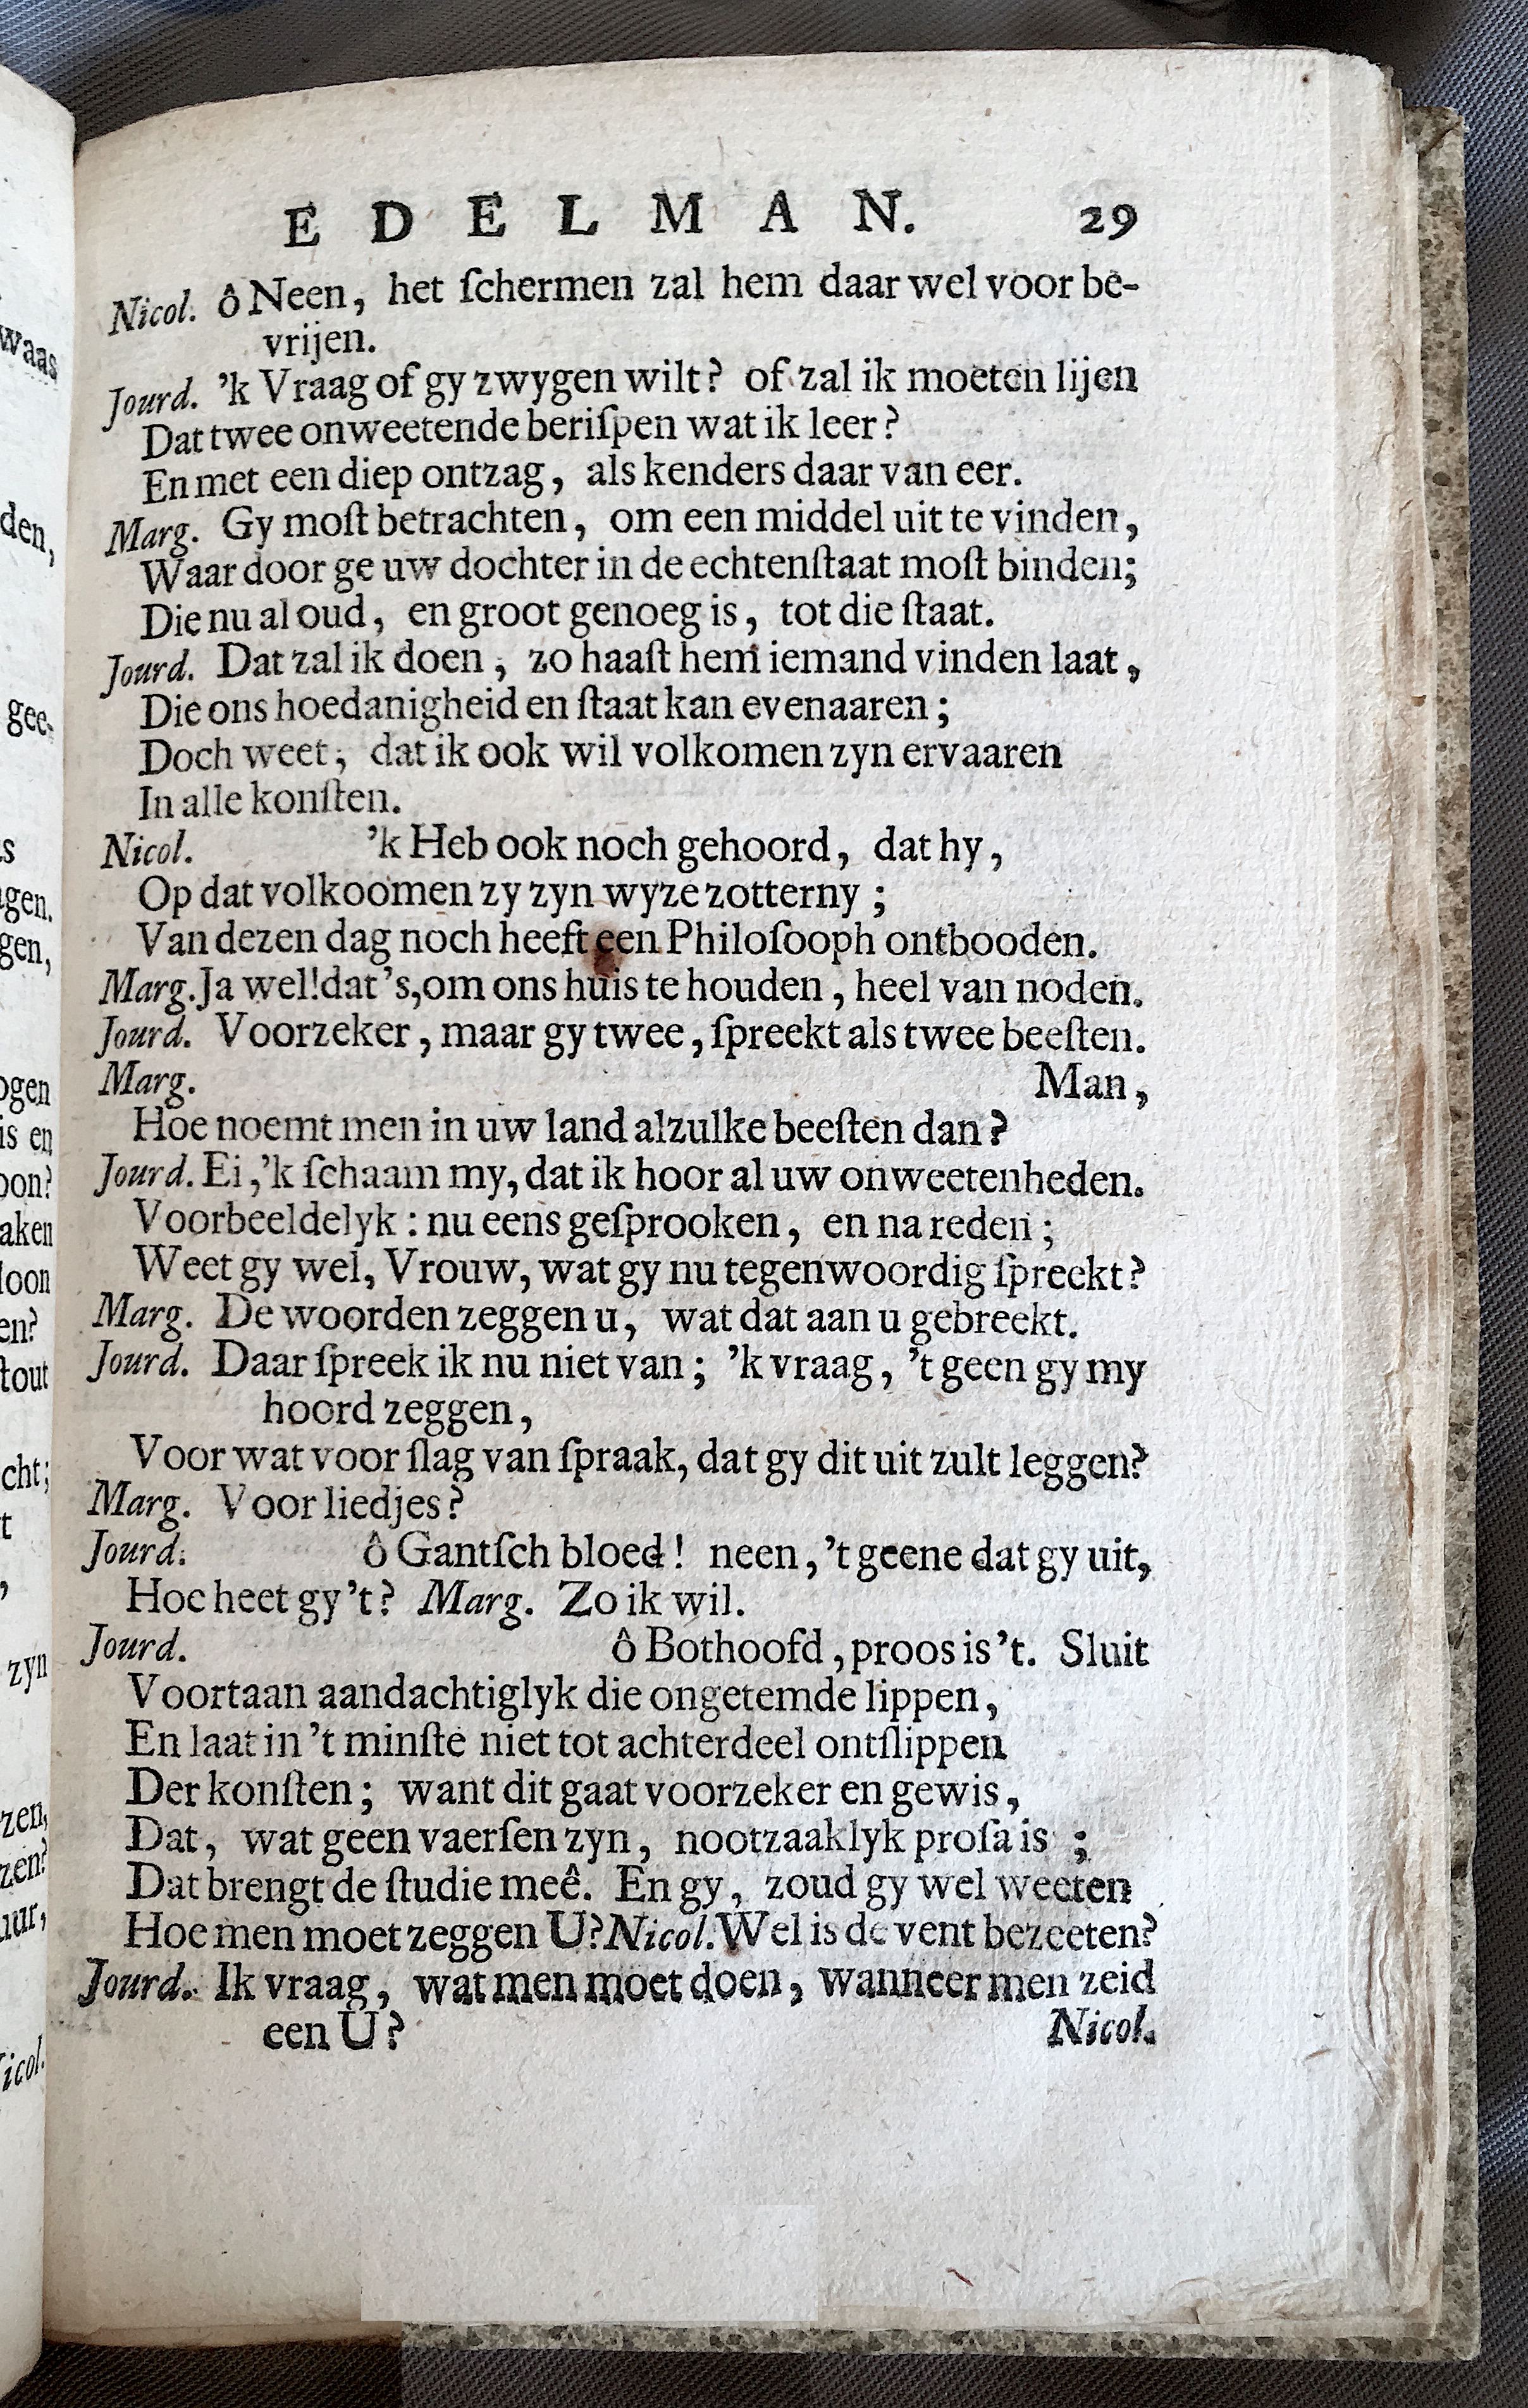 EDELMAN. 29
Nicol. ô Neen, het ſchermen zal hem daar wel voor be-
vrijen.
Jourd. 'k Vraag of gy zwygen wilt? of zal ik moeten lijen
Dat twee onweetende beriſpen wat ik leer?
En met een diep ontzag, als kenders daar van eer.
Marg. Gy moſt betrachten, om een middel uit te vinden,
Waar door ge uw dochter in de echtenſtaat moſt binden;
Die nu al oud, en groot genoeg is, tot die ſtaat.
Jourd. Dat zal ik doen, zo haaſt hem iemand vinden laat,
Die ons hoedanigheid en ſtaat kan evenaaren;
Doch weet, dat ik ook wil volkomen zyn ervaaren
In alle konſten.
Nicol. 'k Heb ook noch gehoord, dat hy,
Op dat volkoomen zy zyn wyze zotterny;
Van dezen dag noch heeft een Philoſooph ontbooden.
Marg. Ja wel! dat's, om ons huis te houden, heel van noden.
Jourd. Voorzeker, maar gy twee, ſpreekt als twee beeſten.
Marg. Man,
Hoe noemt men in uw land alzulke beeſten dan?
Jourd. Ei, 'k ſchaam my, dat ik hoor al uw onweetenheden.
Voorbeeldelyk: nu eens geſprooken, en na reden;
Weet gy wel, Vrouw, wat gy nu tegenwoordig ſpreekt?
Marg. De woorden zeggen u, wat dat aan u gebreekt.
Jourd. Daar ſpreek ik nu niet van; 'k vraag, 't geen gy my
hoord zeggen,
Voor wat voor ſlag van ſpraak, dat gy dit uit zult leggen?
Marg. Voor liedjes?
Jourd. ô Gantſch bloed! neen, 't geene dat gy uit,
Hoe heet gy 't? Marg. Zo ik wil.
Jourd. ô Bothoofd, proos is 't. Sluit
Voortaan aandachtiglyk die ongetemde lippen,
En laat in 't minſte niet tot achterdeel ontſlippen
Der konſten; want dit gaat voorzeker en gewis,
Dat, wat geen vaerſen zyn, nootzaaklyk proſa is;
Dat brengt de ſtudie meê. En gy, zoud gy wel weeten
Hoe men moet zeggen U? Nicol. Wel is de vent bezeeten?
Jourd. Ik vraag, wat men moet doen, wanneer men zeid
een U?
Nicol.